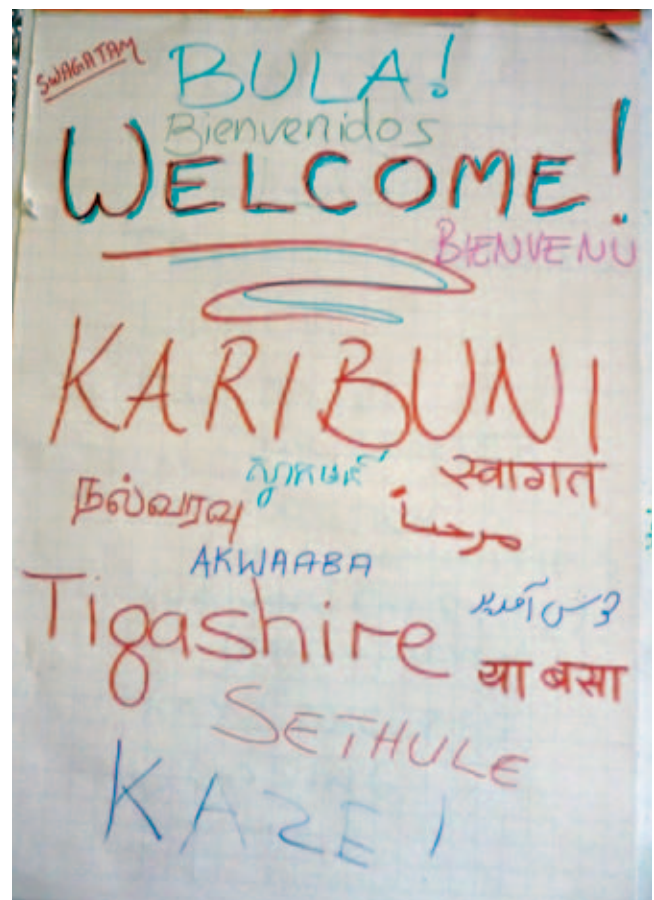 SWAGATAM
BULA!
Bienvenidos
WELCOME!
BIENVENU
KARIBUNI
स्वागत
நல்வரவு
مرحباً
AKWAABA
Tigashire
خوش آمدید
या बसा
SETHULE
KAZE!